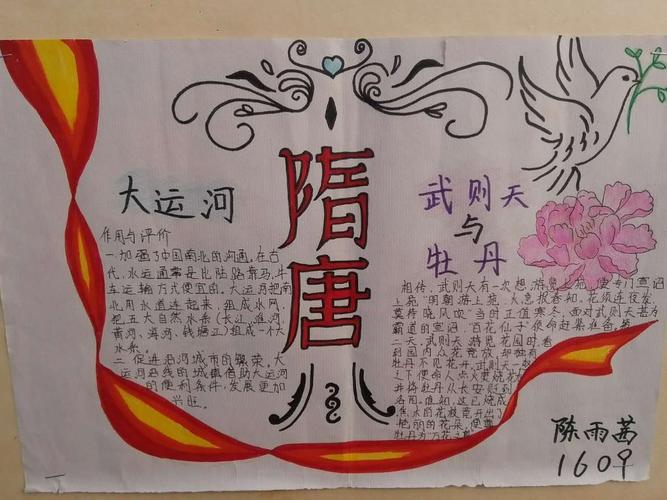 隋唐
大运河
作用与评价
一.加强了中国南北的沟通,在古
代,水运通常是比陆路靠马、牛
车运输方式便宜的,大运河把南
北用水道连起来,组成水网,
把五大自然水系(长江、淮河、
黄河、海河、钱塘江)组成一个大
水系。
二.促进沿河城市的繁荣。大
运河沿线的城镇借助大运河
的便利条件,发展更加
兴旺。
武则天
与
牡丹
相传,武则天有一次想游览上苑,便专门宣诏
上苑,“明朝游上苑,火急报春知,花须连夜发,
莫待晓风吹”当时正值寒冬,面对武则天甚为
霸道的宣诏,“百花仙子”使命赶紧准备,第
二天,武则天游览花园时,看
到园内众花竞放,却独有
牡丹不见花开,武则天
下便命人点火烧花
并将牡丹从长安贬到
洛阳。谁知,这已烧成
焦木的花枝竟开出了
艳丽的花朵,便
牡丹为“万花之
陈雨茜
1609